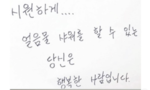 시원하게....
얼음물 샤워를 할 수 있는
당신은
행복한 사람입니다